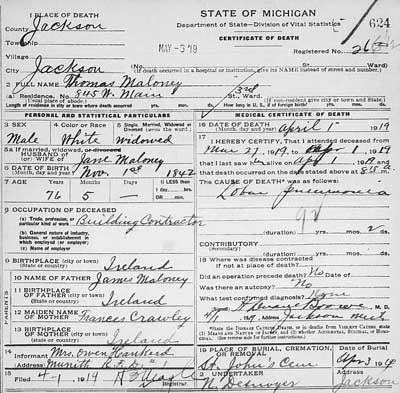 STATE OF MICHIGAN
Department of State—Division of Vital Statistics
CERTIFICATE OF DEATH
624
MAY -3 '19
1 PLACE OF DEATH
County Jackson
Township
Village
City Jackson
Registered No.
(If death occurred in a hospital or institution, give its NAME instead of street and number.)
2 FULL NAME Thomas Maloney
Residence, No. 845 W. Main St.
3rd Ward
(Usual place of abode)
(If non-resident give city or town and State)
Length of residence in city or town where death occurred yrs. mos. ds. How long in U. S., if of foreign birth? yrs. mos. ds.
PERSONAL AND STATISTICAL PARTICULARS
3 SEX
Male
4 Color or Race
White
5 Single, Married, Widowed or Divorced
widowed
5a If married, widowed, or divorced
HUSBAND of
(or) WIFE of Jane Maloney
6 DATE OF BIRTH
(Month, day and year) Nov. 1st 1842
7 AGE
Years 76
Months 5
Days —
If LESS than
1 day
8 OCCUPATION OF DECEASED
(a) Trade, profession, or particular kind of work
Building Contractor
(b) General nature of industry, business, or establishment in which employed (or employer)
(c) Name of employer
9 BIRTHPLACE
(State or country) Ireland
PARENTS
10 NAME OF FATHER James Maloney
11 BIRTHPLACE OF FATHER
(State or country) Ireland
12 MAIDEN NAME OF MOTHER Frances Crawley
13 BIRTHPLACE OF MOTHER
(State or country) Ireland
14 Informant Mrs. Owen Hankerd
(Address) Munith R.F.D.
15 Filed 4-1, 1919
MEDICAL CERTIFICATE OF DEATH
16 DATE OF DEATH
(Month, day and year) April 1 1919
17 I HEREBY CERTIFY, That I attended deceased from
Mar 27, 1919, to Apr 1, 1919
that I last saw him alive on Apr 1, 1919 and that
death occurred on the date stated above at
The CAUSE OF DEATH* was as follows:
Lobar pneumonia
92
(duration) yrs. mos. ds.
CONTRIBUTORY
(Secondary)
(duration) yrs. mos. ds.
18 Where was disease contracted
if not at place of death?
Did an operation precede death? No
Was there an autopsy? No
What test confirmed diagnosis?
19 PLACE OF BURIAL, CREMATION, OR REMOVAL
St. John's Cem
Apr 3 19
20 UNDERTAKER
N Desnoyer
Jackson